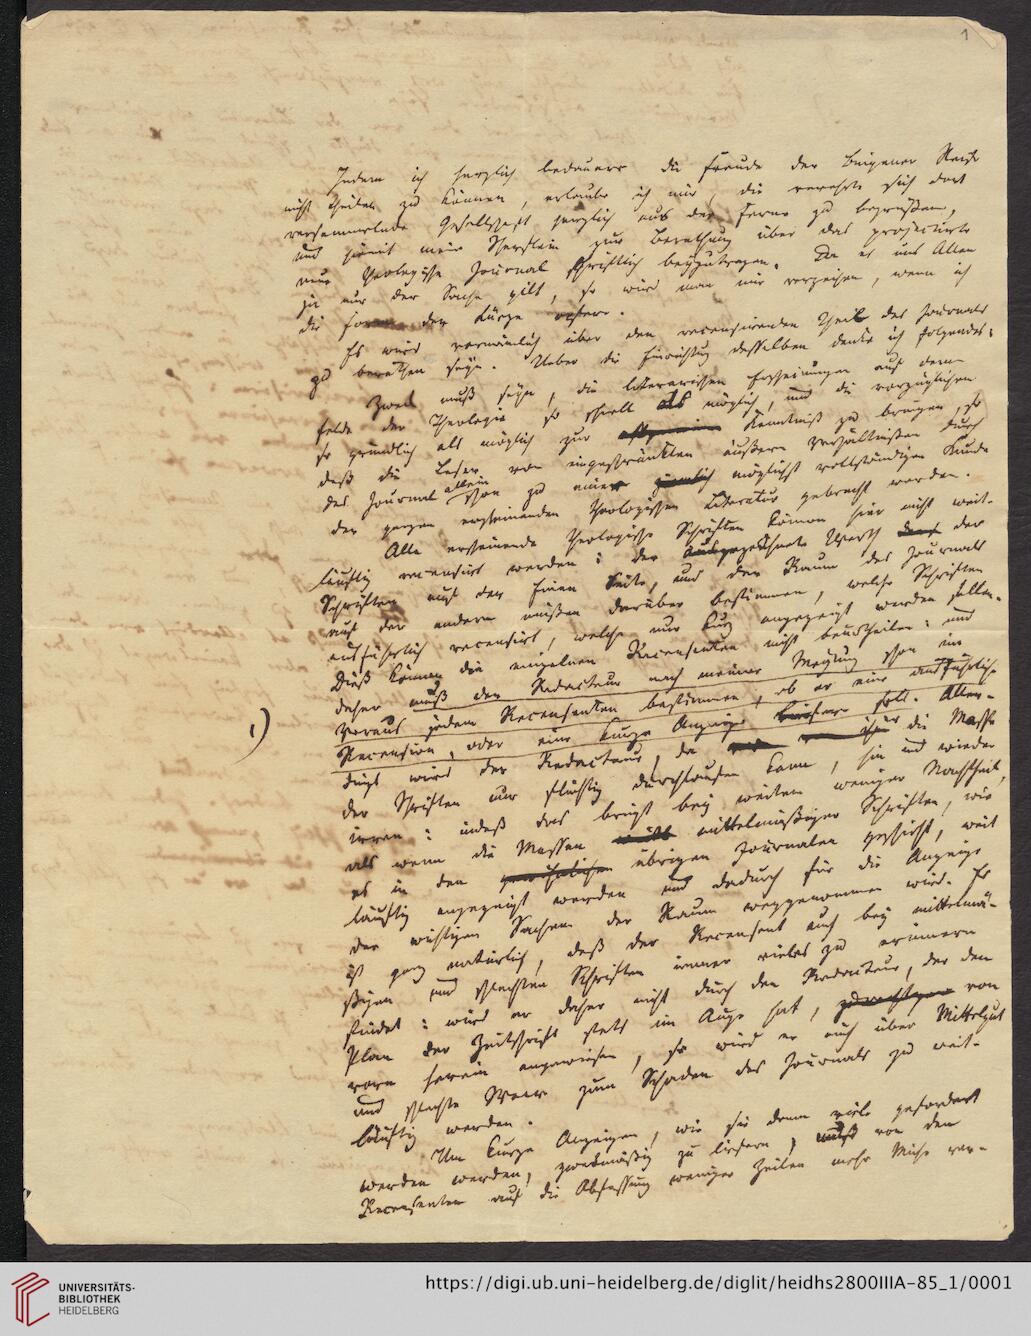 1
Indem ich herzlich bedauere die Freude der Reise
nicht theilen zu können, erlaube ich mir, die verehrte sich dort
versammelnde Gesellschaft herzlich aus der Ferne zu begrüßen,
und hiemit mein Scherflein zur Berathung über das projectirte
neue theologische Journal schriftlich beyzutragen. Da es uns Allen
ja nur der Sache gilt, so wird man mir verzeihen, wenn ich
die Form der Kürze
Es wird vornämlich über den recensirenden Theil des Journals
zu berathen seyn. Ueber die Einrichtung desselben denke ich folgendes:
Zweck muß seyn, die literarischen Erscheinungen auf dem
Felde der Theologie so schnell als möglich, und die vorzüglichen
so gründlich als möglich zur Kenntniß zu bringen, so
daß die Leser von eingeschränkten äußern Verhältnißen durch
das Journal allein schon zu einer möglichst vollständigen Kunde
der ganzen erscheinenden theologischen Literatur gebracht werden.
Alle erscheinende theologische Schriften können hier nicht weit-
läuftig recensirt werden: der Werth der
Schriften auf der Einen Seite, und der Raum des Journals
auf der andern müßen darüber bestimmen, welche Schriften
ausführlich recensirt, welche nur kurz angezeigt werden sollen.
Dieß können die einzelnen Recensenten nicht beurtheilen: und
daher muß der Redacteur nach meiner Meynung schon im
Voraus jedem Recensenten bestimmen, ob er eine ausführliche
1) Recension, oder eine kurze Anzeige liefern soll. Aller-
dings wird der Redacteur, da er die Masse
der Schriften nur flüchtig durchlaufen kann, hin und wieder
irren: indeß das bringt bey weitem weniger Nachtheil,
als wenn die Massen mittelmäßiger Schriften, wie
es in den übrigen Journalen geschieht, weit
läuftig angezeigt werden und dadurch für die Anzeige
der wichtigen Sachen der Raum weggenommen wird. Es
ist ganz natürlich, daß der Recensent auch bey mittelmä-
ßigen und schlechten Schriften immer vieles zu erinnern
findet: wird er daher nicht durch den Redacteur, der den
Plan der Zeitschrift stets im Auge hat, von
vorn herein angewiesen, so wird er auch über Mittelgut
und schlechte Waare zum Schaden des Journals zu weit-
läuftig werden.
Um kurze Anzeigen, wie sie denn viele gefordert
werden werden, zweckmäßig zu liefern, muß von den
Recensenten auf die Abfassung weniger Zeilen mehr Mühe ver-
UNIVERSITÄTS-
BIBLIOTHEK
HEIDELBERG
https://digi.ub.uni-heidelberg.de/diglit/heidhs2800IIIA-85_1/0001